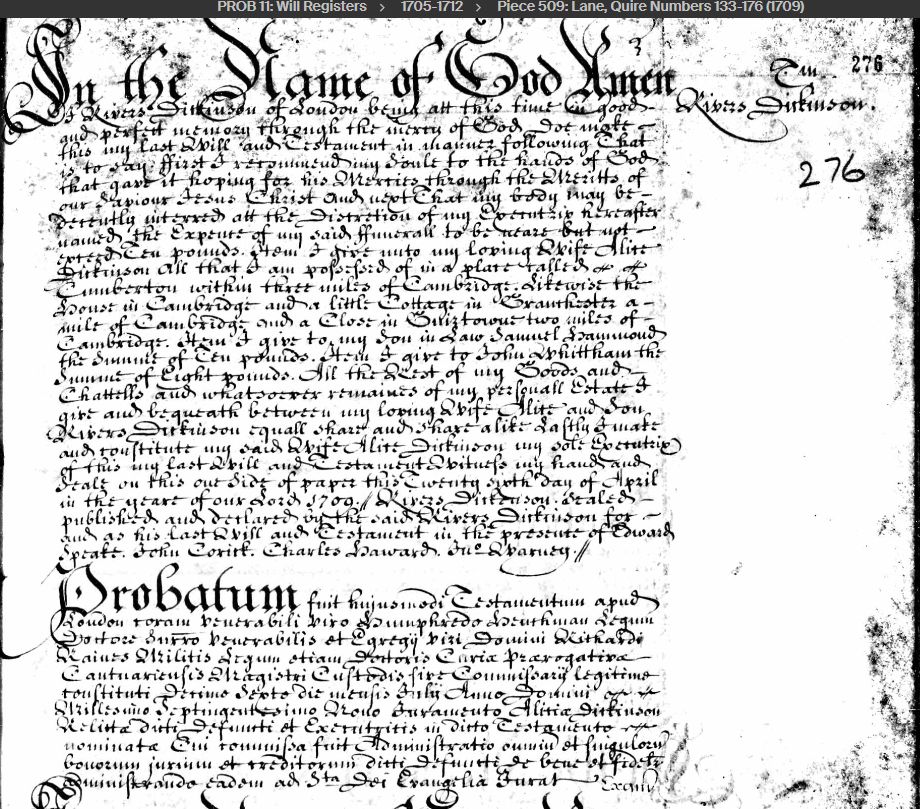 PROB 11: Will Registers > 1705-1712 > Piece 509: Lane, Quire Numbers 133-176 (1709)
In the Name of God Amen
276
I Rivers Dickinson of London being att this time in good
Rivers Dickinson.
and perfect memory through the mercy of God, Doe make
this my last Will and Testament in manner following That
276
is to say ffirst I recommend my Soule to the hands of God
that gave it hoping for his Mercies through the Meritts of
our Saviour Jesus Christ and next That my body may be
decently interred att the Discretion of my Executrix hereafter
named, the Expence of my said ffunerall to be neare but not
exceed Ten pounds. Item I give unto my loving Wife Alice
Dickinson All that I am possessed of in a place called
within three miles of Cambridge. Likewise the
House in Cambridge and a little Cottage in Grantcester a
mile of Cambridge and a Close in two miles of
Cambridge. Item I give to my Son in Law Samuel Hammond
the Summe of Ten pounds. Item I give to John Whittham the
Summe of Eight pounds. All the Rest of my Goods and
Chattells and whatsoever remaines of my personall Estate I
give and bequeath between my loving Wife Alice and Son
Rivers Dickinson equall share and share alike Lastly I make
and constitute my said Wife Alice Dickinson my sole Executrix
of this my last Will and Testament Witness my hand and
Seale on this one Side of paper this Twenty sixth day of April
in the yeare of our Lord 1709 // Rivers Dickinson. Sealed
published and declared by the said Rivers Dickinson for
and as his last Will and Testament in the presence of Edward
Speake. John Corick. Charles Haward. Jno. Varney. //
Probatum fuit hujusmodi Testamentum apud
London coram venerabili viro Humphredo Henchman Legum
Doctore Surro venerabilis et Egregij viri Domini Richardi
Raines Militis Legum etiam Doctoris Curiæ Prærogativæ
Cantuariensis Magistri Custodis sive Commissarij legitime
constituti Decimo Septo die mensis Julij Anno Domini
Millesimo Septingentesimo Nono Juramento Aliciæ Dickinson
Relictæ dicti Defuncti et Executricis in dicto Testamento
nominatæ Cui commissa fuit Administratio omniu et singuloru
bonorum jurium et creditorum dicti defuncti de bene et fidelr
administrando eadem ad Sta Dei Evangelia Jurat Exam